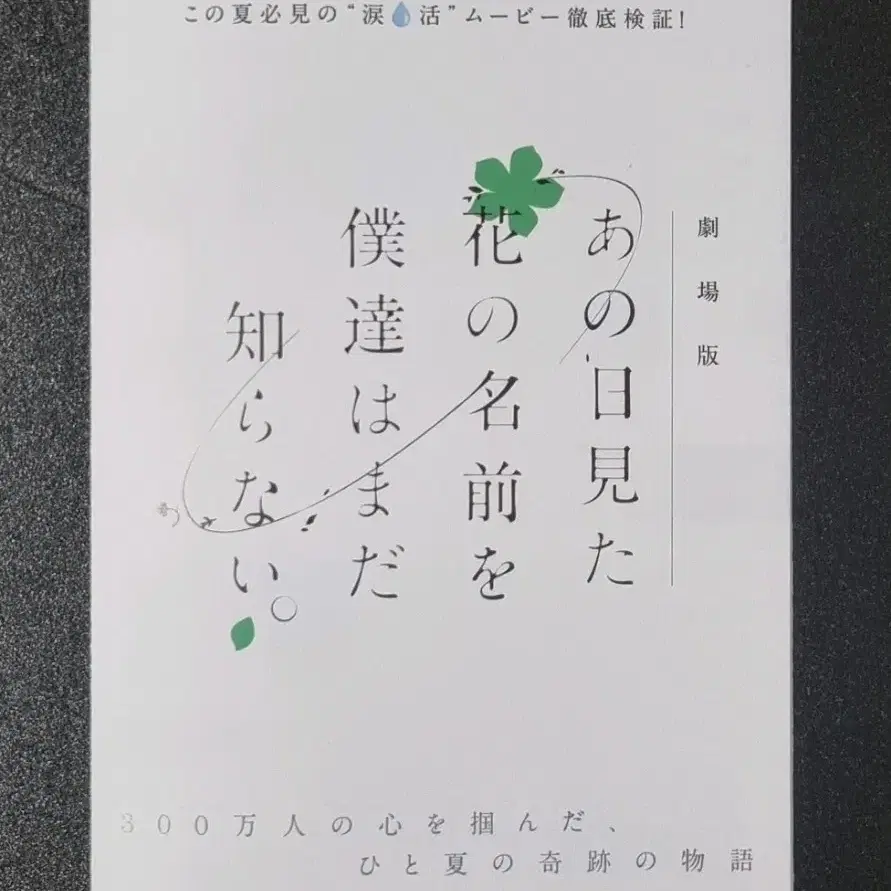 この夏必見の“涙💧活”ムービー徹底検証!
劇場版
あの日見た
花の名前を
僕達はまだ
知らない。
300万人の心を掴んだ、
ひと夏の奇跡の物語